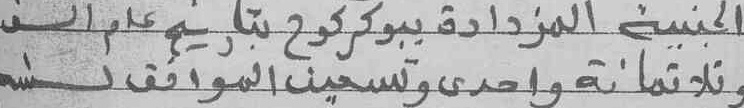 الجنينة المزدادة ببوكركوح بتاريخ عام الف
وتلاتمائة واحدى وتسعين الموافق لسنة